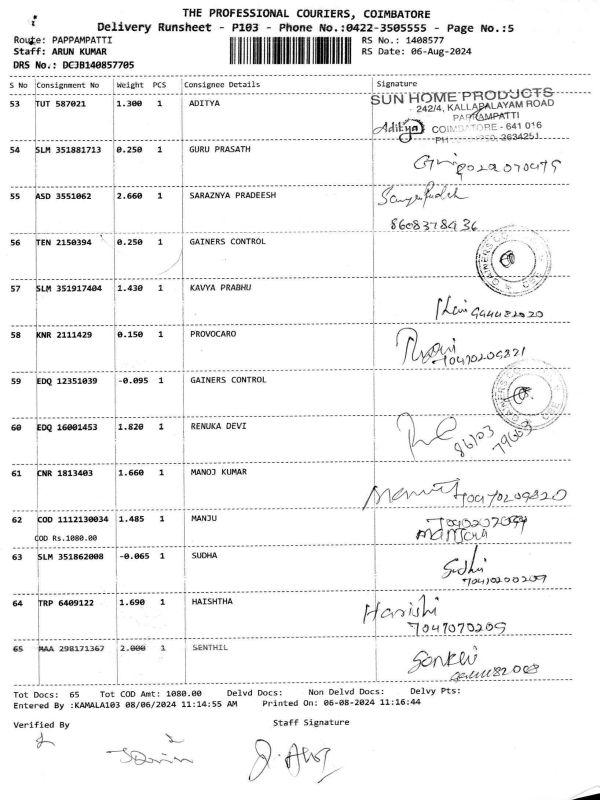 THE PROFESSIONAL COURIERS, COIMBATORE
Delivery Runsheet - P103 - Phone No.:0422-3505555 - Page No.:5
Route: PAPPAMPATTI RS No.: 1408577
Staff: ARUN KUMAR RS Date: 06-Aug-2024
DRS No.: DCJB140857705
S No Consignment No Weight PCS Consignee Details Signature
53 TUT 587021 1.300 1 ADITYA
SUN HOME PRODUCTS
242/4, KALLAPALAYAM ROAD
PAPPAMPATTI
Aditya COIMBATORE - 641 016
54 SLM 351881713 0.250 1 GURU PRASATH
55 ASD 3551062 2.660 1 SARAZNYA PRADEESH
8608378936
56 TEN 2150394 0.250 1 GAINERS CONTROL
57 SLM 351917404 1.430 1 KAVYA PRABHU
58 KNR 2111429 0.150 1 PROVOCARO
59 EDQ 12351039 -0.095 1 GAINERS CONTROL
60 EDQ 16001453 1.820 1 RENUKA DEVI
61 CNR 1813403 1.660 1 MANOJ KUMAR
62 COD 1112130034 1.485 1 MANJU
COD Rs.1080.00
63 SLM 351862008 -0.065 1 SUDHA
64 TRP 6409122 1.690 1 HAISHTHA
65 MAA 298171367 2.000 1 SENTHIL
Tot Docs: 65 Tot COD Amt: 1080.00 Delvd Docs: Non Delvd Docs: Delvy Pts:
Entered By :KAMALA103 08/06/2024 11:14:55 AM Printed On: 06-08-2024 11:16:44
Verified By Staff Signature